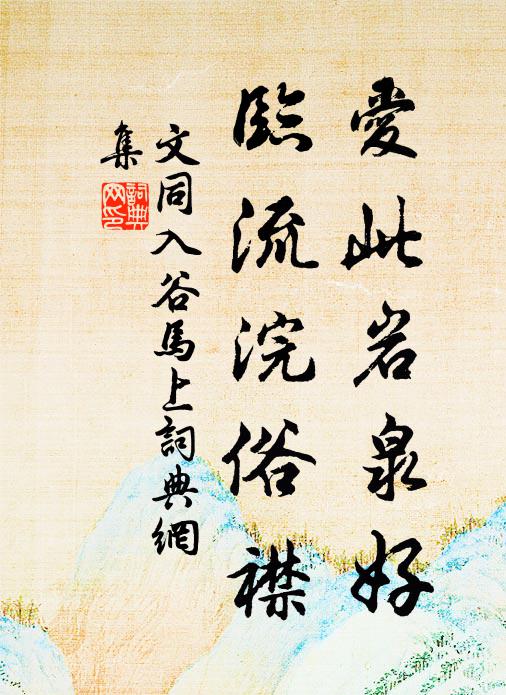 愛此岩泉好
臨流浣俗襟
文同入谷馬上詞典網
集
詞典網印